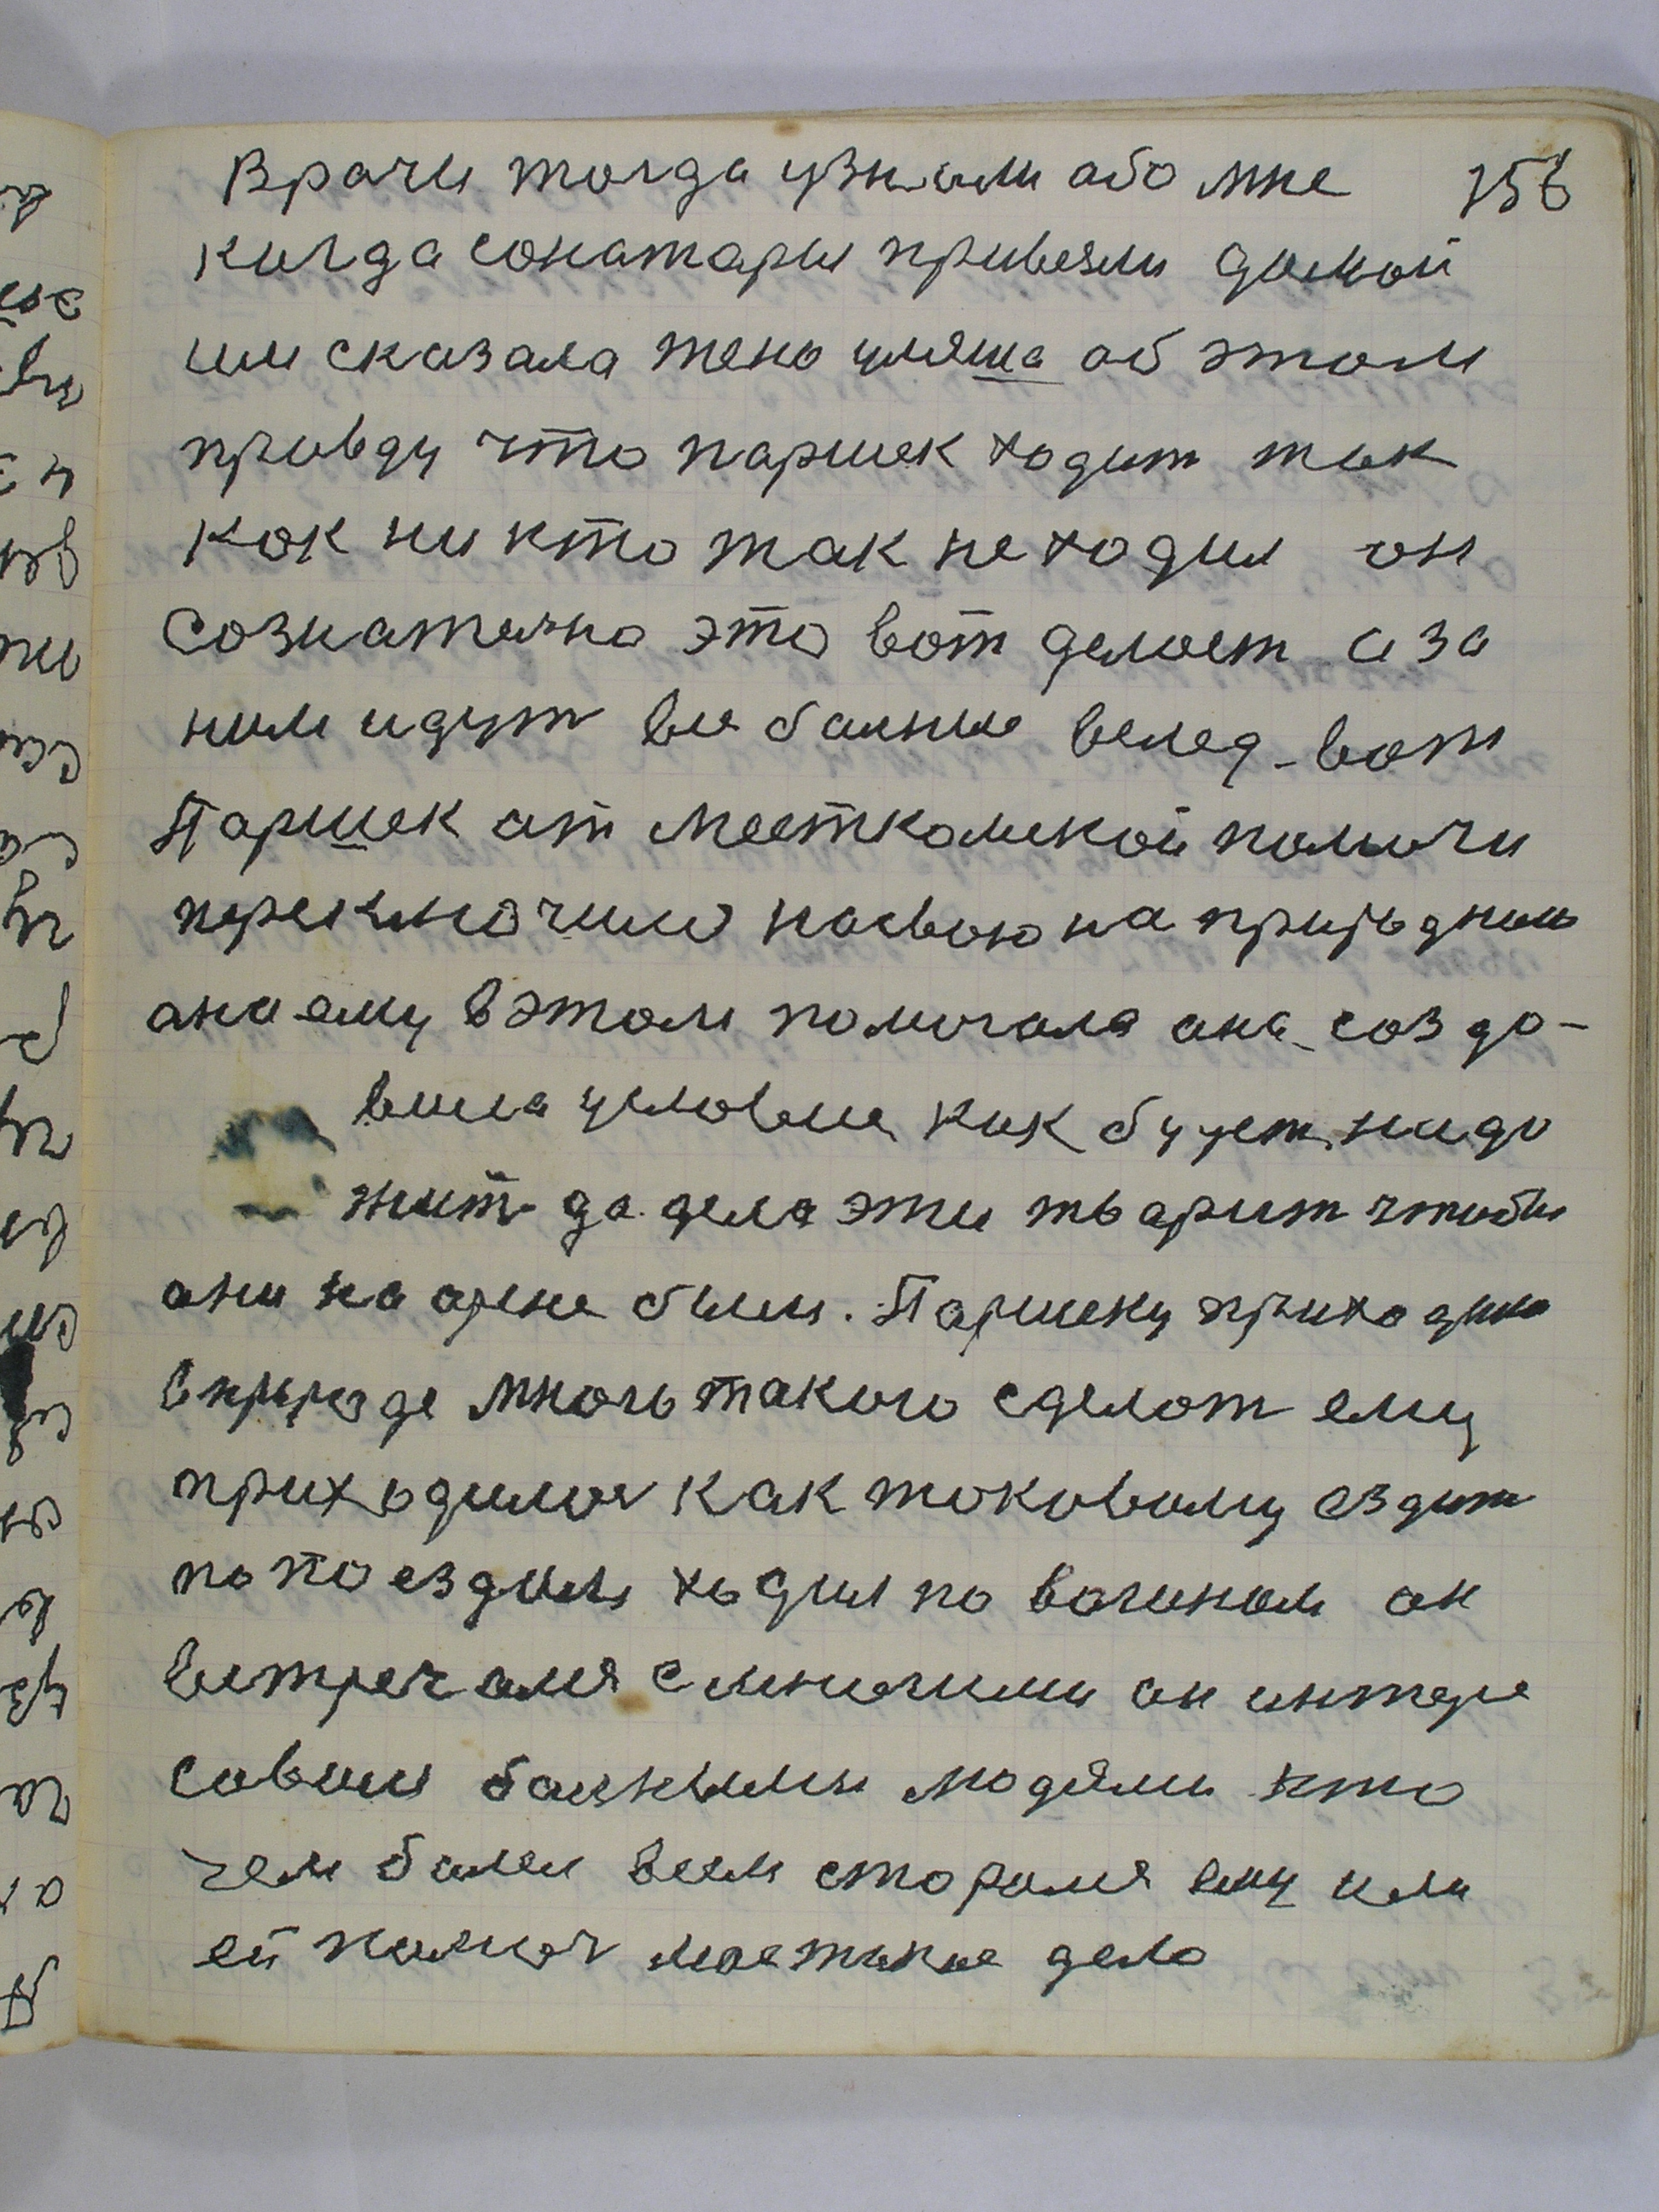 Врачи тогда узнали обо мне 156
когда сонатары привезли домой
им сказала жена уляша об этом
правду что паршек ходит так
как ни кто так не ходил он
сознательно это вот делает а за
ним идут все больные вслед вот
Паршек от месткомской помочи
переключило насвою на природную
она ему вэтом помогала она созда-
вала условие как будет надо
жит да дела эти тварит чтобы
они на арене были. Паршеку приходило
вприроде много такого сделот ему
приходилос как таковому ездит
по поездам ходил по вагонам он
встречался смногими он интере
совался больными людями кто
чем болел всем старался ему или
ей помоч местькое дело